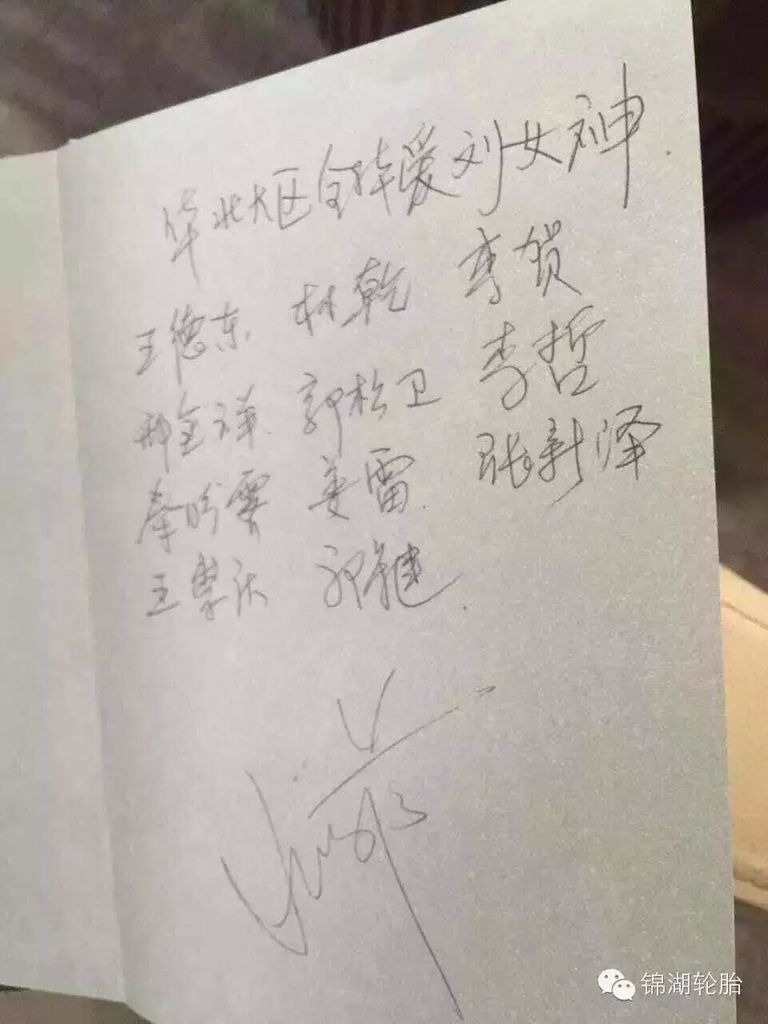 华北大区全体爱刘女神
王德东 林乾 李贺
邢金祥 郭松卫 李哲
姜雷 张新泽
王
锦湖轮胎